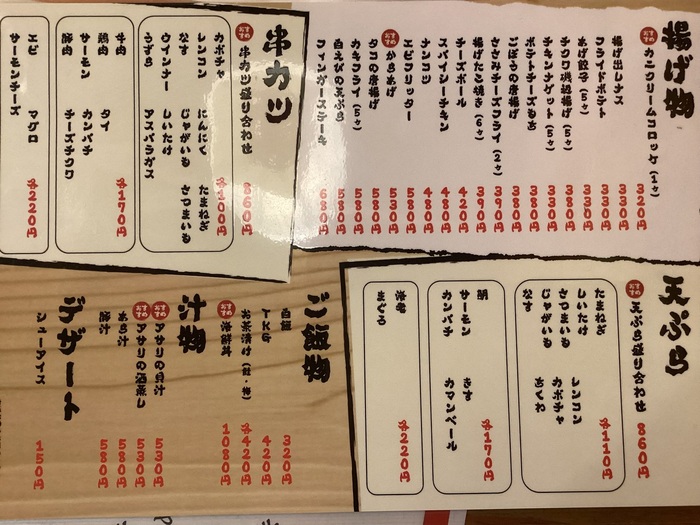 揚げ物
おすすめ カニクリームコロッケ (1ヶ) 320円
揚げ出しナス 330円
フライドポテト 330円
あげ餃子 (5ヶ) 330円
チクワ磯辺揚げ (5ヶ) 330円
チキンナゲット (5ヶ) 330円
ポテトチーズもち 380円
ごぼうの唐揚げ 380円
ささみチーズフライ (2ヶ) 390円
揚げたこ焼き (6ヶ) 390円
チーズボール 420円
スパイシーチキン 480円
ナンコツ 480円
エビフリッター 580円
おすすめ からあげ 530円
タコの唐揚げ 580円
カキフライ (5ヶ) 580円
白えびの天ぷら 580円
フィンガーステーキ 680円
串カツ
おすすめ 串カツ盛り合わせ 860円
カボチャ にんにく たまねぎ 各100円
レンコン じゃがいも さつまいも
なす しいたけ
ウインナー アスパラガス
うずら
牛肉 タイ 各170円
鶏肉 カンパチ
サーモン チーズチクワ
豚肉
エビ マグロ 各220円
サーモンチーズ
天ぷら
おすすめ 天ぷら盛り合わせ 860円
たまねぎ レンコン 各110円
しいたけ カボチャ
さつまいも ちくわ
じゃがいも
なす
鯛 きす 各170円
サーモン カマンベール
カンパチ
海老 各220円
まぐろ
ご飯物
白飯 320円
TKG 420円
お茶漬け (鮭・梅) 各420円
おすすめ 海鮮丼 1080円
汁物
おすすめ アサリの貝汁 530円
おすすめ アサリの酒蒸し 530円
あら汁 580円
豚汁 580円
デザート
シューアイス 150円